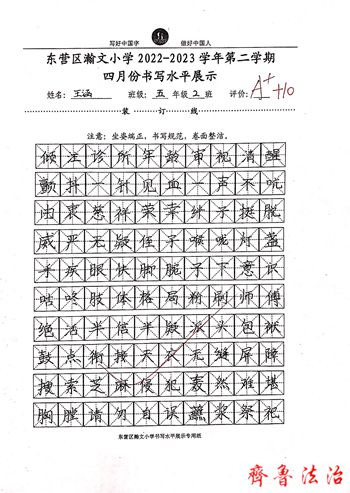 写好中国字 做好中国人
东营区瀚文小学2022-2023学年第二学期
四月份书写水平展示
姓名: 王涵 班级: 五 年级 2 班 评价: A+ +10
装 订 线
注意: 坐姿端正, 书写规范, 卷面整洁。
倾注诊所年龄审视清醒
颤抖一针见血一声不吭
由衷慈祥荣幸绊子挺脱
威严无疑侄子喉咙灯盏
手疾眼快脚腕子下意识
咕咚肢体格局粉刷师傅
绝活半信半疑派头包袱
鼓点衔接天衣无缝屏障
搜索芝麻侵犯轰然难堪
胸膛请勿自误蘸浆祭祀
东营区瀚文小学书写水平展示专用纸
齐鲁法治